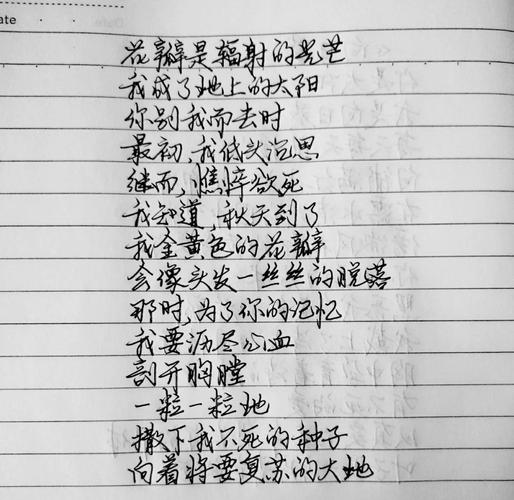 ate
花瓣是辐射的光芒
我成了地上的太阳
你别我而去时
最初,我低头沉思
继而,憔悴欲死
我知道,秋天到了
我金黄色的花瓣
会像头发一丝丝的脱落
那时,为了你的记忆
我要沥尽心血
剖开胸膛
一粒一粒地
撒下我不死的种子
向着将要复苏的大地